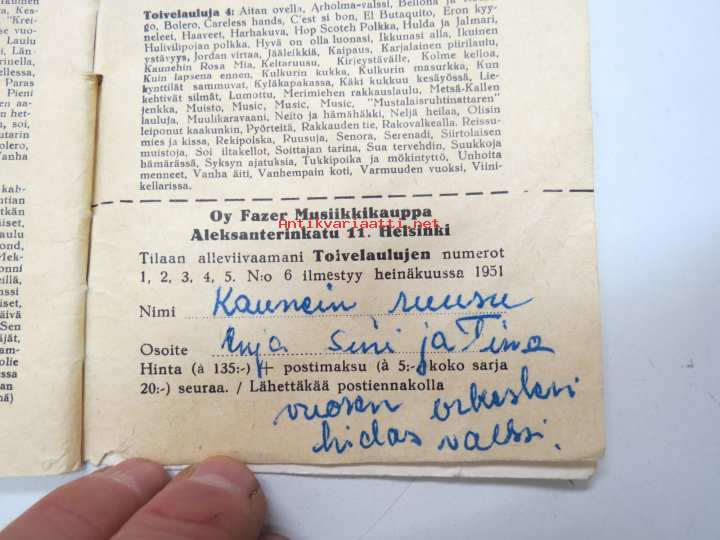 utin
us-
ky,
o, Kes-
"Krei-
Laulu
Län-
rinella,
ellessa,
Paras
Pieni
en aa-
en het-
a, soi,
utarin
olero,
Vanha
kah-
ntian
tkän
iset,
laulu
ond,
Mek-
onni
eillä,
nssi
iset,
äivä
Sen
äjät,
am-
olie
ssan
nä)
Toivelauluja 4: Aitan ovella, Arholma-valssi, Bellona ja
go, Bolero, Careless hands, C'est si bon, El Butaquito, Eron kyy-
neleet, Haaveet, Harhakuva, Hop Scotch Polkka, Hulda ja Jalmari,
Hulivilipojan polkka, Hyvä on olla luonasi, Ikkunasi alla, Ikuinen
ystävyys, Jordan virtaa, Jääleikkiä, Kaipaus, Karjalainen piirilaulu,
Kaunehin Rosa Mia, Keltaruusu, Kirjestyävälle, Kolme kelloa,
Kuin lapsena ennen, Kulkurin kukka, Kulkurin masurkka, Kun
kynttilät sammuvat, Kyläkapakassa, Käki kukkuu kesäyössä, Lie-
kehtivät silmät, Lumottu, Merimiehen rakkauslaulu, Metsä-Kallen
jenkka, Muisto, Music, Music, Music, "Mustalaisruhtinattaren"
lauluja, Muulikaravaani, Neito ja hämähäkki, Neljä heilaa, Olisin
leiponut kaakunkin, Pyörteitä, Rakkauden tie, Rakovalkealla. Reissu-
mies ja kissa, Rekipolska, Ruusuja, Senora, Serenadi, Siirtolaisen
muistoja, Soi iltakellot, Soittajan tarina, Sua tervehdin, Suukkoja
hämärässä, Syksyn ajatuksia, Tukkipoika ja mökintyttö, Unhoita
menneet, Vanha äiti, Vanhempain koti, Varmuuden vuoksi, Viini-
kellarissa.
Oy Fazer Musiikkikauppa
Antikvariaatti.net
Aleksanterinkatu 11. Helsinki
Tilaan alleviivaamani Toivelaulujen numerot
1, 2, 3, 4, 5. N:o 6 ilmestyy heinäkuussa 1951
Nimi Kaunein ruusu
Osoite Anja Sini ja Tina
Hinta (à 135:-) + postimaksu (à 5:- koko sarja
20:-) seuraa. / Lähettäkää postiennakolla
vuosen orkesteri
hidas valssi.